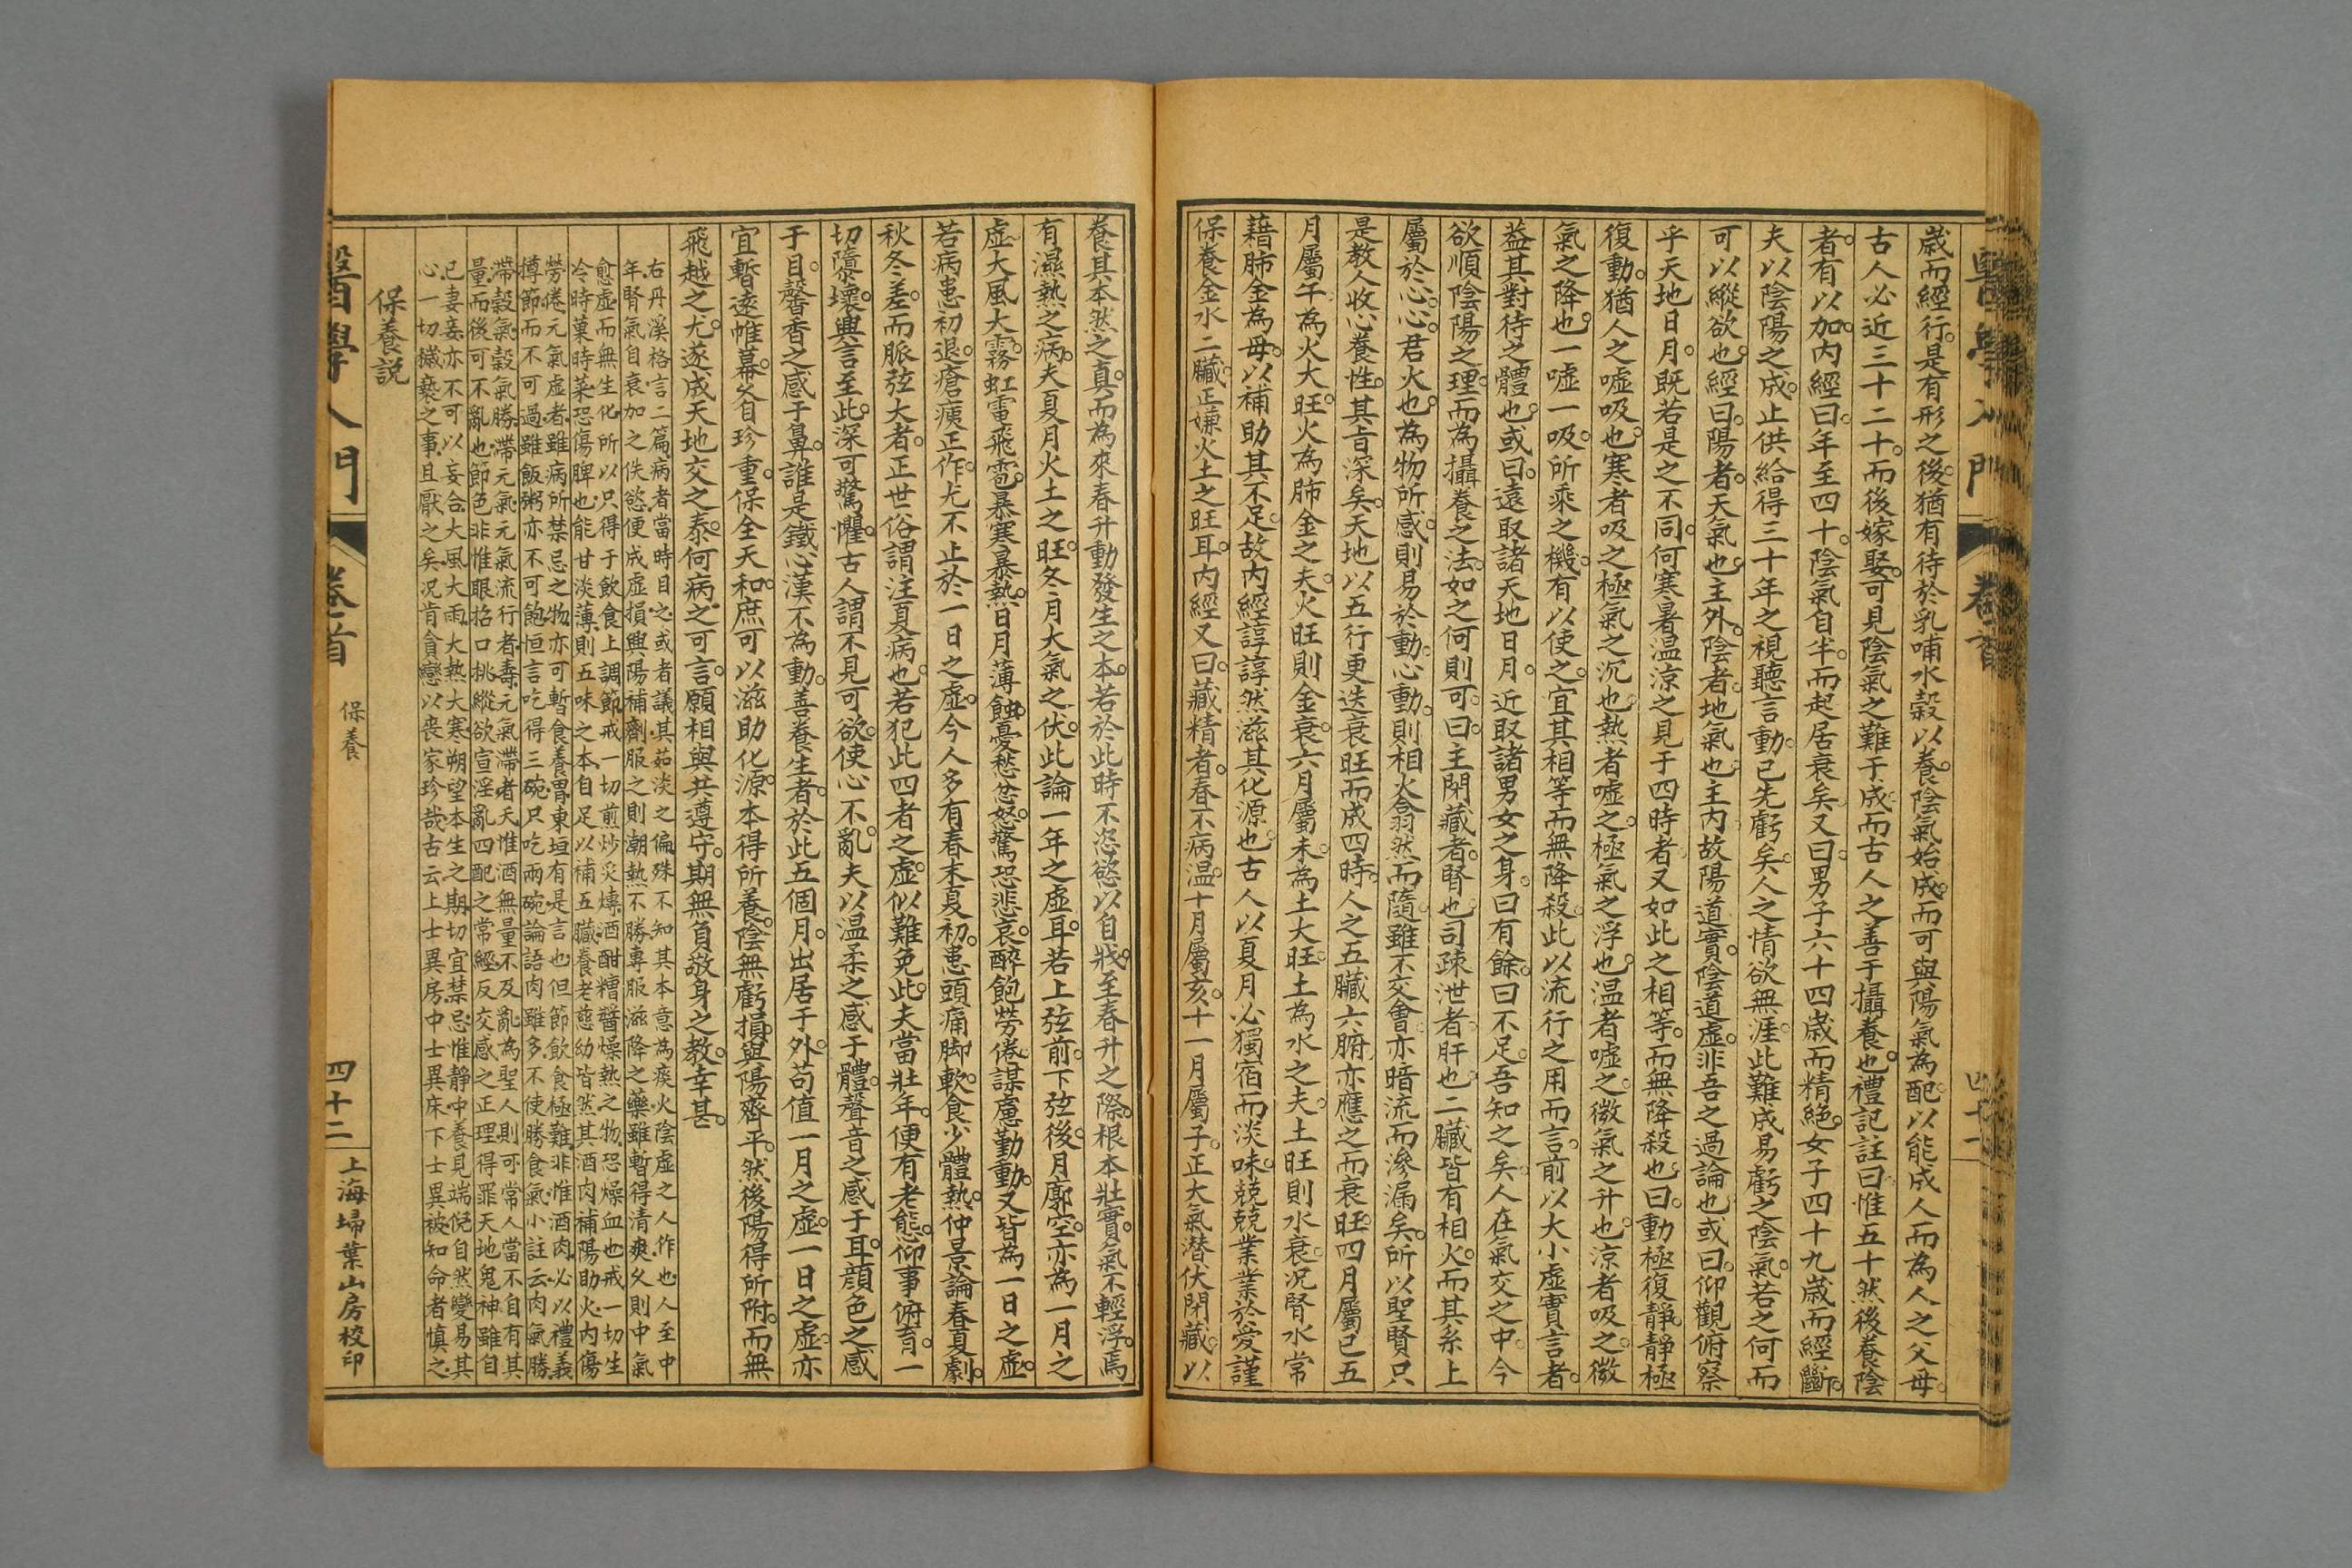 歲而經行是有形之後猶有待於乳哺水穀以養陰氣始成而可與陽氣為配以能成人而為人之父母
古人必近三十二十而後嫁娶可見陰氣之難于成而古人之善于攝養也禮記註曰惟五十然後養陰
者有以加內經曰年至四十陰氣自半而起居衰矣又曰男子六十四歲而精絕女子四十九歲而經斷
夫以陰陽之成止供給得三十年之視聽言動已先虧矣人之情欲無涯此難成易虧之陰氣若之何而
可以縱欲也經曰陽者天氣也主外陰者地氣也主內故陽道實陰道虛非吾之過論也或曰仰觀俯察
乎天地日月既若是之不同何寒暑温涼之見于四時者又如此之相等而無降殺也曰動極復靜靜極
復動猶人之噓吸也寒者吸之極氣之沉也熱者噓之極氣之浮也温者噓之微氣之升也涼者吸之微
氣之降也一噓一吸所乘之機有以使之宜其相等而無降殺此以流行之用而言前以大小虛實言者
葢其對待之體也或曰遠取諸天地日月近取諸男女之身曰有餘曰不足吾知之矣人在氣交之中今
欲順陰陽之理而為攝養之法如之何則可曰主閉藏者腎也司疎泄者肝也二臟皆有相火而其系上
屬於心心君火也為物所感則易於動心動則相火翕然而隨雖不交會亦暗流而滲漏矣所以聖賢只
是教人收心養性其旨深矣天地以五行更迭衰旺而成四時人之五臟六腑亦應之而衰旺四月屬巳五
月屬午為火大旺火為肺金之夫火旺則金衰六月屬未為土大旺土為水之夫土旺則水衰况腎水常
藉肺金為母以補助其不足故內經諄諄然滋其化源也古人以夏月必獨宿而淡味兢兢業業於愛謹
保養金水二臟正嫌火土之旺耳內經又曰藏精者春不病温十月屬亥十一月屬子正大氣潜伏閉藏以
養其本然之真而為來春升動發生之本若於此時不恣慾以自戕至春升之際根本壯實氣不輕浮焉
有濕熱之病夫夏月火土之旺冬月大氣之伏此論一年之虛耳若上弦前下弦後月廓空亦為一月之
虛大風大霧虹雷飛雹暴寒暴熱日月薄蝕憂愁忿怒驚恐悲哀醉飽勞倦謀慮勤動又皆為一日之虛
若病患初退瘡痍正作尤不止於一日之虛今人多有春末夏初患頭痛脚軟食少體熱仲景論春夏劇
秋冬差而脈弦大者正世俗謂注夏病也若犯此四者之虛似難免此夫當壯年便有老態仰事俯育一
切隳壞興言至此深可驚懼古人謂不見可欲使心不亂夫以温柔之感于體聲音之感于耳顏色之感
于目馨香之感于鼻誰是鐵心漢不為動善養生者於此五個月出居于外苟值一月之虛一日之虛亦
宜暫遠帷幕各自珍重保全天和庶可以滋助化源本得所養陰無虧損與陽齊平然後陽得所附而無
飛越之尤遂成天地交之泰何病之可言願相與共遵守期無負敬身之教幸甚
右丹溪格言二篇病者當時目之或者議其茹淡之偏殊不知其本意為痰火陰虛之人作也人至中
年腎氣自衰加之佚慾便成虛損興陽補劑服之則潮熱不勝專服滋降之藥雖暫得清爽久則中氣
愈虛而無生化所以只得于飲食上調節戒一切煎炒炙煿酒酣糟醬燥熱之物恐燥血也戒一切生
冷時菓時菜恐傷脾也能甘淡薄則五味之本自足以補五臟養老慈幼皆然其酒肉補陽助火內傷
勞倦元氣虛者雖病所禁忌之物亦可暫食養胃東垣有是言也但節飲食極難非惟酒肉必以禮義
撙節而不可過雖飯粥亦不可飽恒言吃得三碗只吃兩碗論語肉雖多不使勝食氣小註云肉氣勝
滯穀氣穀氣勝滯元氣元氣流行者壽元氣滯者夭惟酒無量不及亂為聖人則可常人當不自有其
量而後可不亂也節色非惟眼掐口挑縱欲宣淫亂四配之常經反交感之正理得罪天地鬼神雖自
己妻妾亦不可以妄合大風大雨大熱大寒朔望本生之期切宜禁忌惟靜中養見端倪自然變易其
心一切搣䙝之事且厭之矣况肯貪戀以喪家珍哉古云上士異房中士異床下士異被知命者慎之
保養説
醫學入門
卷首
保養
四十二
上海埽葉山房校印